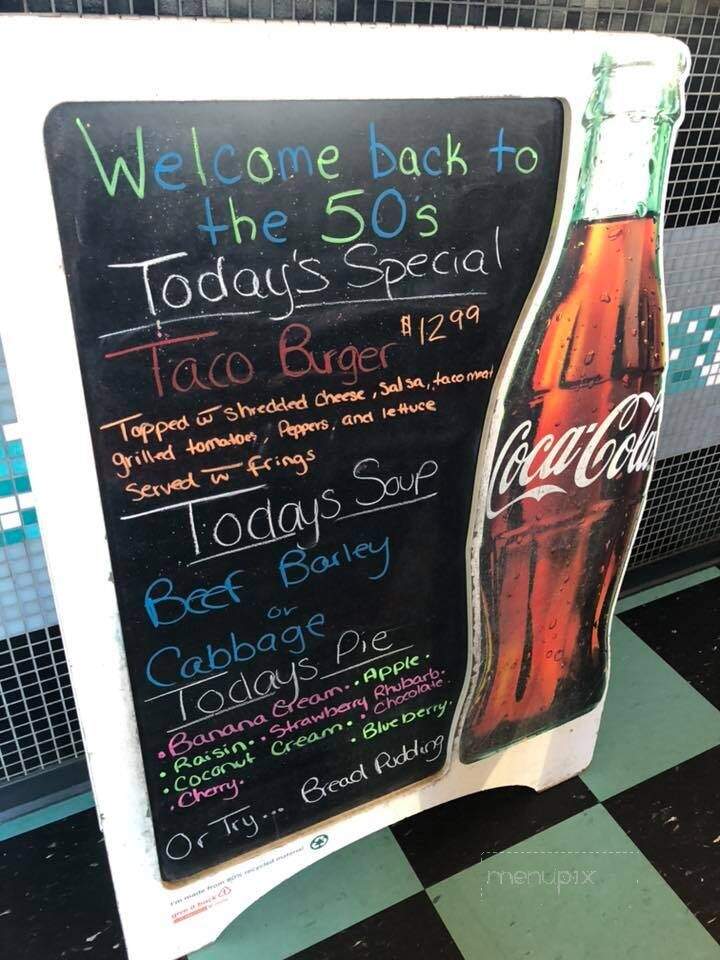 Welcome back to
the 50's
Today's Special
Taco Burger $12.99
Topped w shredded cheese, salsa, taco meat
grilled tomatoes, Peppers, and lettuce
Served w frings
Todays Soup
Beef Barley
or
Cabbage
Todays Pie
• Banana Cream. • Apple.
• Raisin. • Strawberry Rhubarb.
• Coconut Cream. • Chocolate.
• Cherry. • Blueberry.
Or Try... Bread Pudding
Coca-Cola
I'm made from 80% recycled material
give it back
menupix